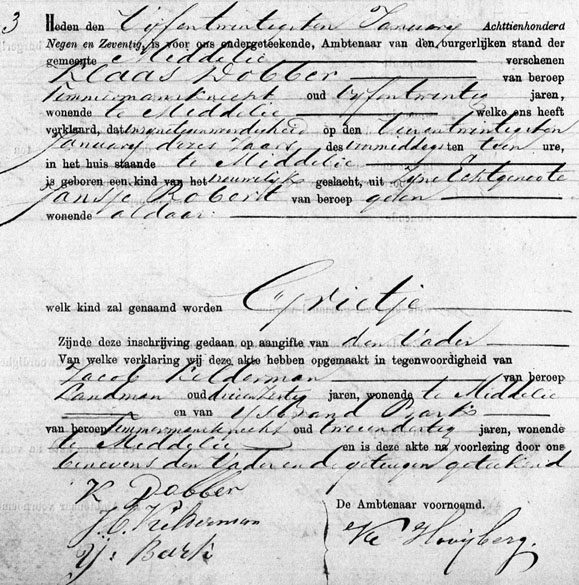 3 Heden den vyfentwintigsten January Achttienhonderd
Negen en Zeventig, is voor ons ondergeteekende, Ambtenaar van den burgerlijken stand der
gemeente Middelie verschenen
Klaas Dobber van beroep
Timmermansknecht oud vyfentwintig jaren,
wonende te Middelie welke ons heeft
verklaard, dat in zyne tegenwoordigheid op den
January dezes Jaars des voormiddags ten ure,
in het huis staande te Middelie
is geboren een kind van het vrouwelijk geslacht, uit zyne Echtgenoote
Jansje Robert van beroep geten
wonende aldaar.
welk kind zal genaamd worden Grietje
Zijnde deze inschrijving gedaan op aangifte van den Vader
Van welke verklaring wij deze akte hebben opgemaakt in tegenwoordigheid van
Jacob Kelderman van beroep
Landman oud jaren, wonende te Middelie
en van IJsbrand Bark
van beroep Timmermansknecht oud jaren, wonende
te Middelie en is deze akte na voorlezing door ons
benevens den Vader en de getuigen geteekend
K Dobber
J. C. Kelderman
Ys Bark
De Ambtenaar voornoemd.
Kl Hooyberg.